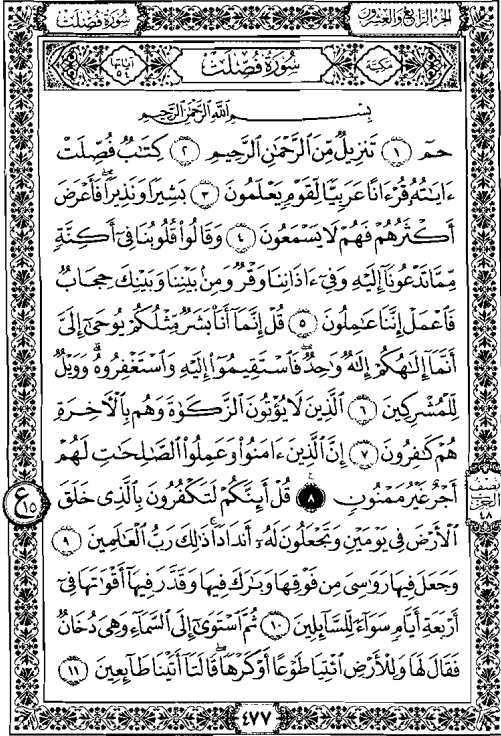 سُورَةُ فُصِّلَتْ
الجُزءُ الرَّابِعُ وَالعِشْرُونَ
آيَاتُهَا ٥٤
سُورَةُ فُصِّلَتْ
مَكِّيَّة
بِسْمِ ٱللَّهِ ٱلرَّحْمَٰنِ ٱلرَّحِيمِ
حمٓ ١ تَنزِيلٌ مِّنَ ٱلرَّحْمَٰنِ ٱلرَّحِيمِ ٢ كِتَٰبٌ فُصِّلَتْ
ءَايَٰتُهُۥ قُرْءَانًا عَرَبِيًّا لِّقَوْمٍ يَعْلَمُونَ ٣ بَشِيرًا وَنَذِيرًا فَأَعْرَضَ
أَكْثَرُهُمْ فَهُمْ لَا يَسْمَعُونَ ٤ وَقَالُوا۟ قُلُوبُنَا فِىٓ أَكِنَّةٍ
مِّمَّا تَدْعُونَآ إِلَيْهِ وَفِىٓ ءَاذَانِنَا وَقْرٌ وَمِنۢ بَيْنِنَا وَبَيْنِكَ حِجَابٌ
فَٱعْمَلْ إِنَّنَا عَٰمِلُونَ ٥ قُلْ إِنَّمَآ أَنَا۠ بَشَرٌ مِّثْلُكُمْ يُوحَىٰٓ إِلَىَّ
أَنَّمَآ إِلَٰهُكُمْ إِلَٰهٌ وَٰحِدٌ فَٱسْتَقِيمُوٓا۟ إِلَيْهِ وَٱسْتَغْفِرُوهُ ۗ وَوَيْلٌ
لِّلْمُشْرِكِينَ ٦ ٱلَّذِينَ لَا يُؤْتُونَ ٱلزَّكَوٰةَ وَهُم بِٱلْـَٔاخِرَةِ
هُمْ كَٰفِرُونَ ٧ إِنَّ ٱلَّذِينَ ءَامَنُوا۟ وَعَمِلُوا۟ ٱلصَّٰلِحَٰتِ لَهُمْ
أَجْرٌ غَيْرُ مَمْنُونٍ ٨ قُلْ أَئِنَّكُمْ لَتَكْفُرُونَ بِٱلَّذِى خَلَقَ
ٱلْأَرْضَ فِى يَوْمَيْنِ وَتَجْعَلُونَ لَهُۥٓ أَندَادًا ۚ ذَٰلِكَ رَبُّ ٱلْعَٰلَمِينَ ٩
وَجَعَلَ فِيهَا رَوَٰسِىَ مِن فَوْقِهَا وَبَٰرَكَ فِيهَا وَقَدَّرَ فِيهَآ أَقْوَٰتَهَا فِىٓ
أَرْبَعَةِ أَيَّامٍ سَوَآءً لِّلسَّآئِلِينَ ١٠ ثُمَّ ٱسْتَوَىٰٓ إِلَى ٱلسَّمَآءِ وَهِىَ دُخَانٌ
فَقَالَ لَهَا وَلِلْأَرْضِ ٱئْتِيَا طَوْعًا أَوْ كَرْهًا قَالَتَآ أَتَيْنَا طَآئِعِينَ ١١
ع ١٥
نصف الحزب ٤٨
٤٧٧